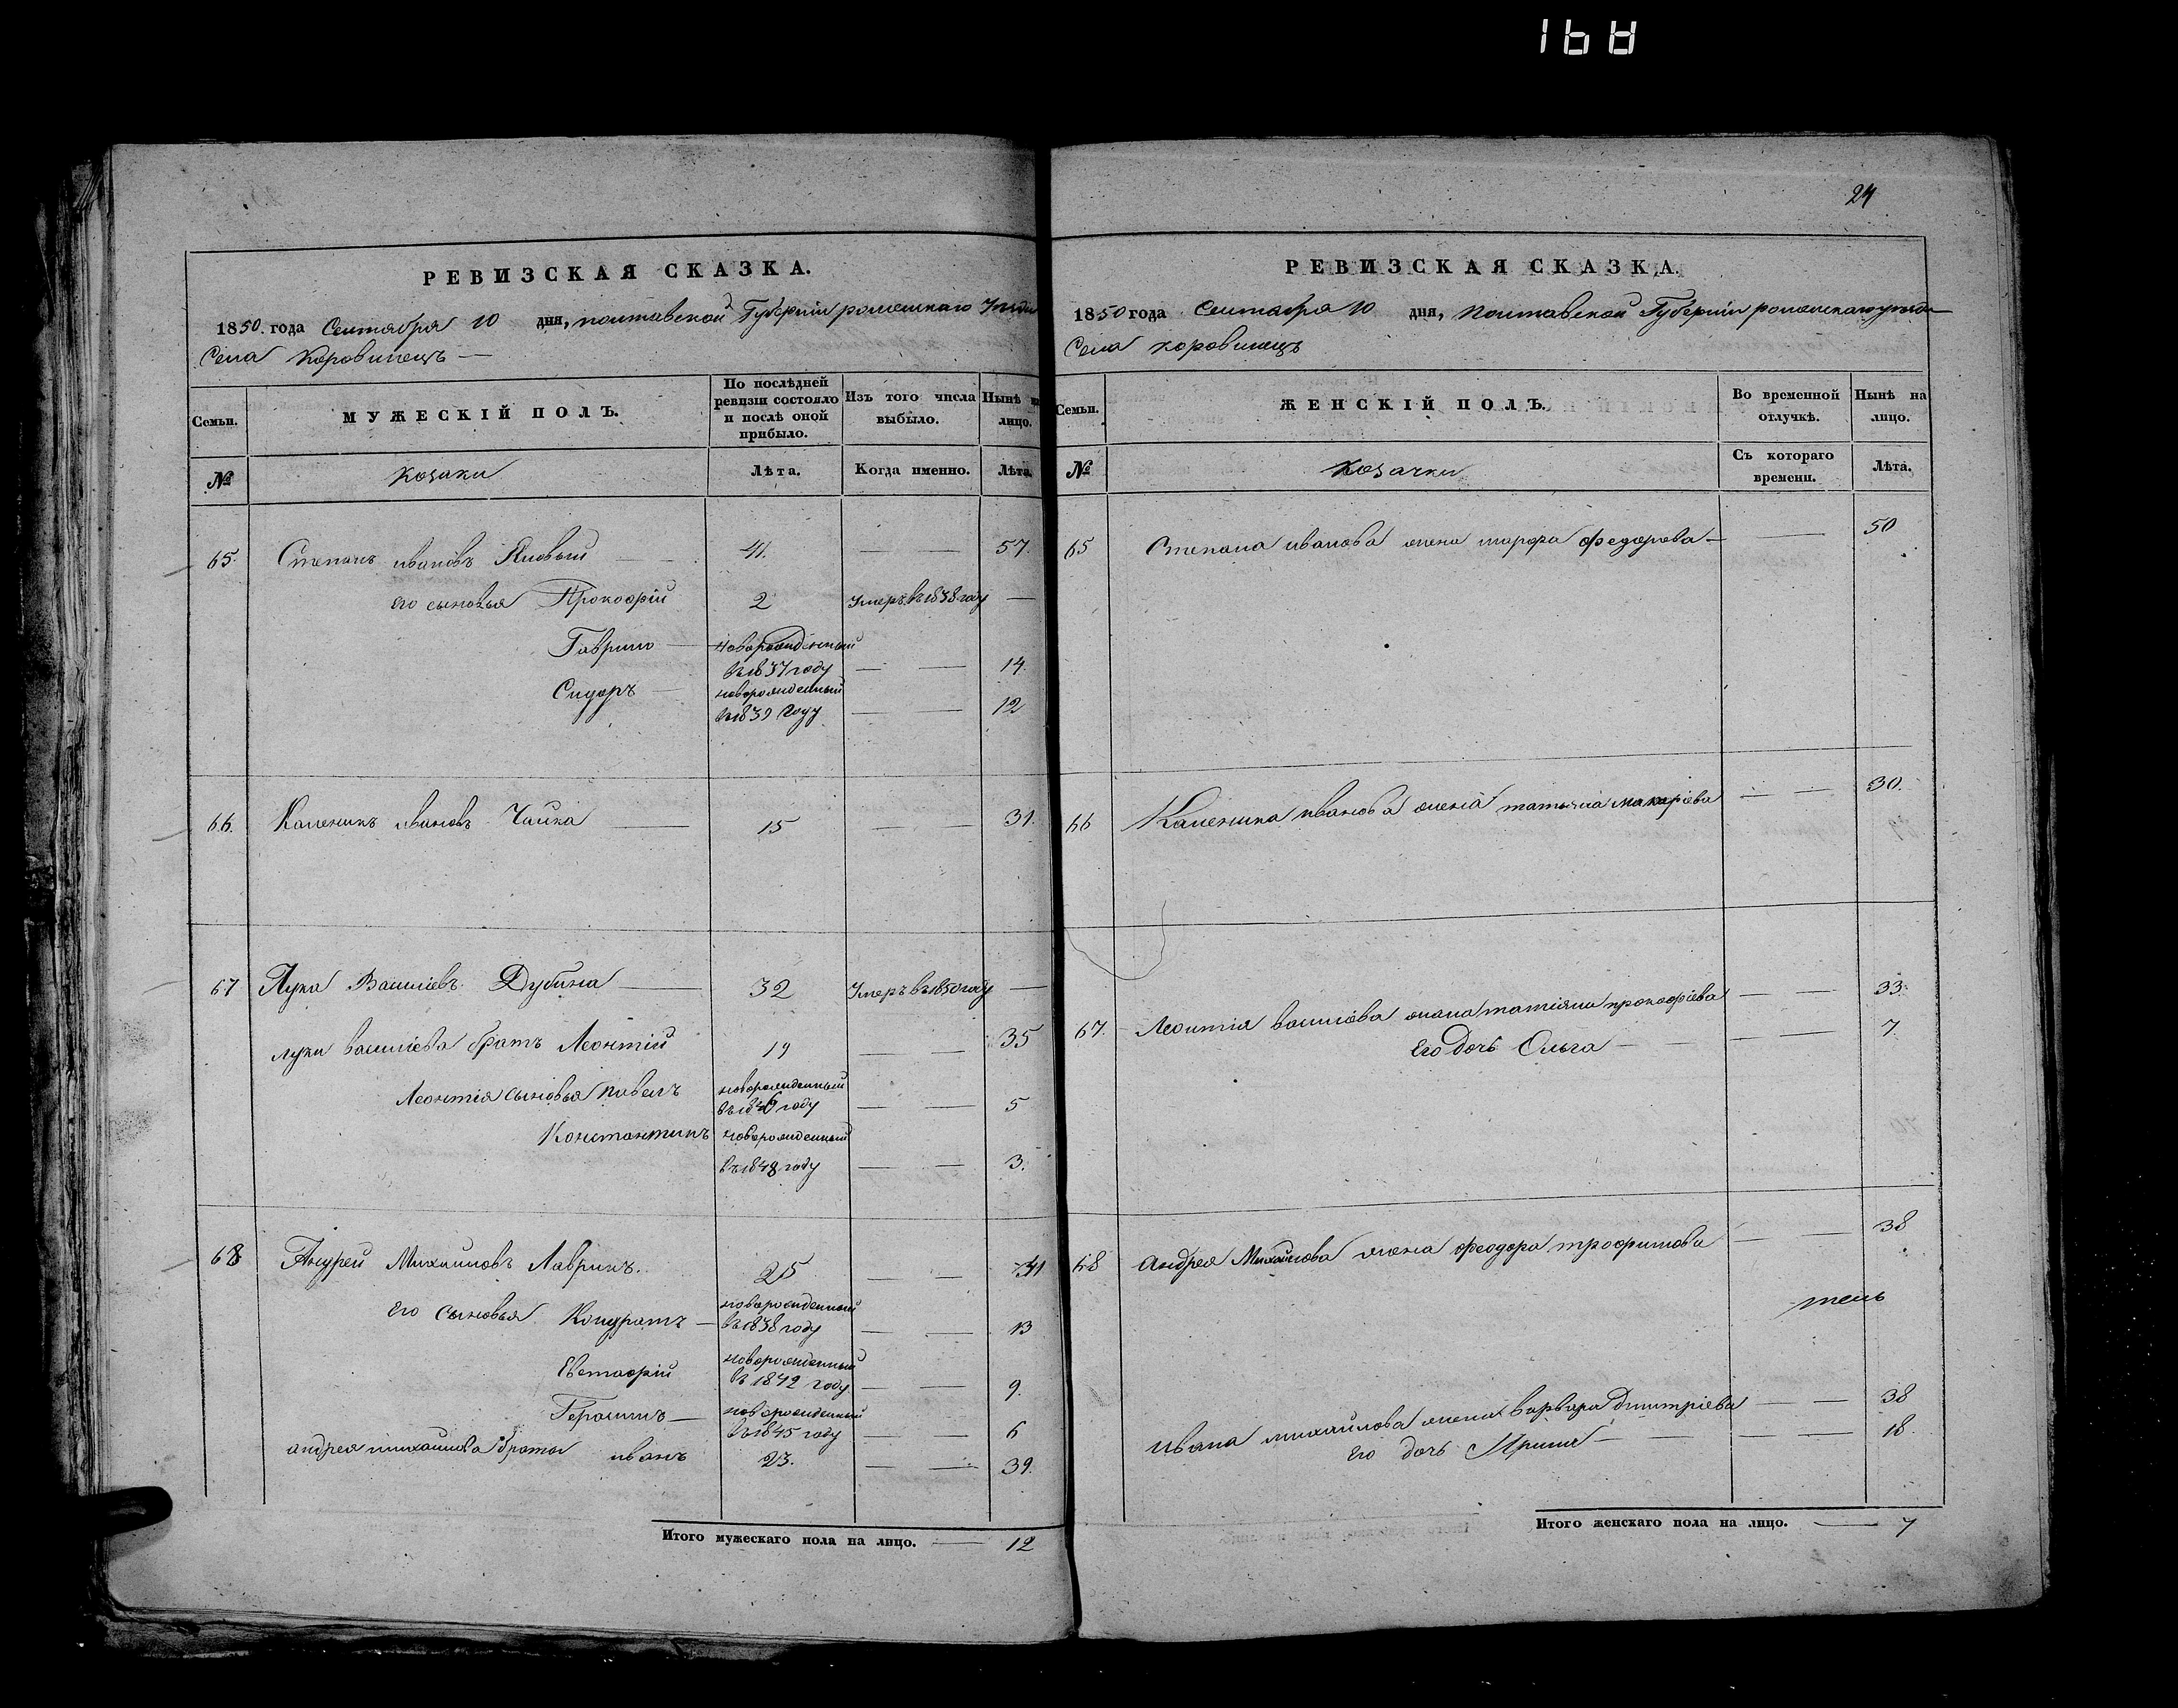 168
24
РЕВИЗСКАЯ СКАЗКА.
1850 года Сентября 10 дня, полтавской Губерніи роменскаго Уезда
Села Коровинецъ
Семьи.
МУЖЕСКІЙ ПОЛЪ.
По послѣдней ревизіи состояло и послѣ оной прибыло.
Изъ того числа выбыло.
Нынѣ на лицо.
№
Козаки
Лѣта.
Когда именно.
Лѣта.
65. Степанъ ивановъ 41. 57.
его сыновья Прокофій 2 Умеръ въ 1838 году
Гаврило новорожденный въ 1837 году 14.
Сидоръ новорожденный въ 1839 году 12
66. Каленикъ ивановъ Чайка 15 31.
67 Лука Василіевъ Дубина 32 Умеръ въ 1850 году
луки василіева братъ Леонтій 19 35
Леонтія сыновья павелъ новорожденный въ 1846 году 5
Константинъ новорожденный въ 1848 году 3.
68 Андрей Михайловъ Лавринъ. 25 41
его сыновья Кондратъ новорожденный въ 1838 году 13
Евстафій новорожденный въ 1842 году 9.
Герасимъ новорожденный въ 1845 году 6
андрея михайлова братъя иванъ 23. 39.
Итого мужескаго пола на лицо. 12
РЕВИЗСКАЯ СКАЗКА.
1850 года Сентября 10 дня, Полтавской Губерніи роменскаго уезда
Села коровинецъ
Семьи.
ЖЕНСКІЙ ПОЛЪ.
Во временной отлучкѣ.
Нынѣ на лицо.
№
Козачки
Съ котораго времени.
Лѣта.
65 Степана иванова жена марфа федорова 50
66 Каленика иванова жена татьяна макаріева 30.
67. Леонтія василіева жена татіяна прокофіева 33.
Его дочь Ольга 7.
68 Андрея Михайлова жена феодора трофимова 38
ивана михайлова жена варвара дмитріева 38
Его дочь Ирина 18.
Итого женскаго пола на лицо. 7